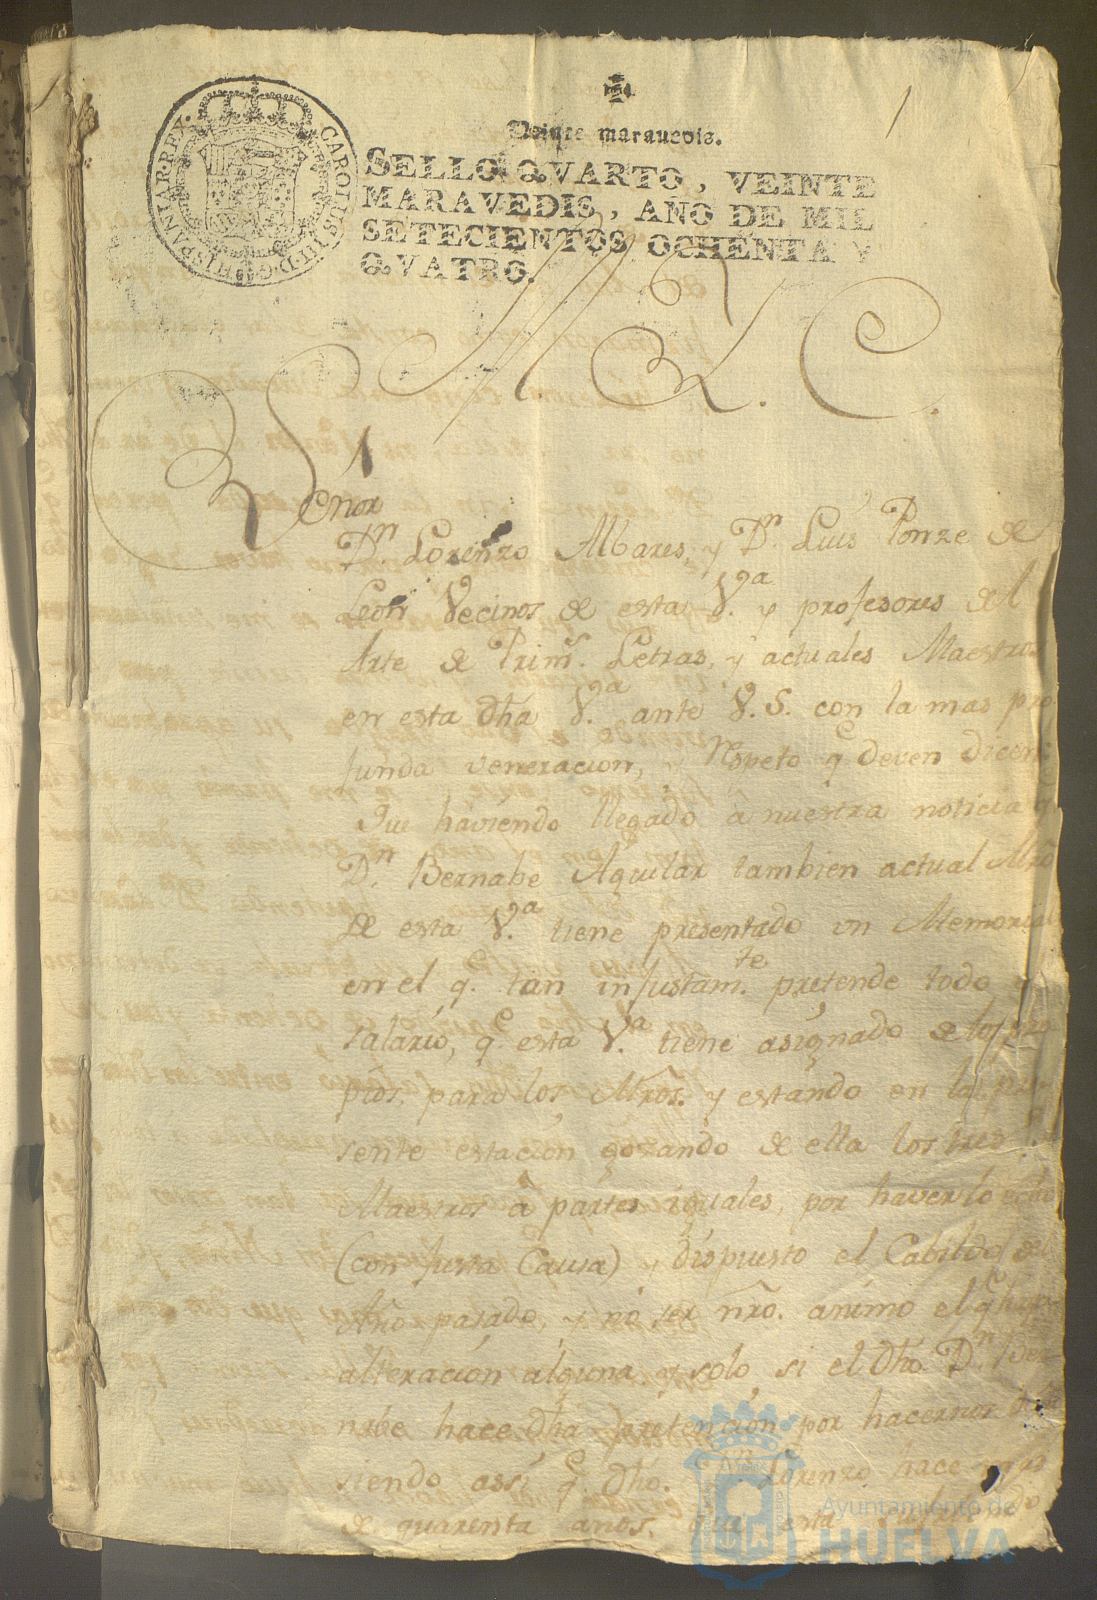 1
Veinte marauedis.
SELLO QVARTO, VEINTE
MARAVEDIS, AÑO DE MIL
SETECIENTOS OCHENTA Y
QVATRO.
CAROLUS III D. G. HISPANIAR. REX.
Señor
Dn. Lorenzo Albares, y Dn. Luis Ponze de
León Vecinos de esta V.a y profesores del
Arte de Prim.s Letras, y actuales Maestros
en esta dha V.a ante V.S. con la mas pro
funda veneracion, y Respeto q.e deven dicen:
Que haviendo llegado à nuestra noticia q.
Dn. Bernabe Aguilar tambien actual Mrō
de esta V.a tiene presentado un Memorial
en el q. tan injustam.te pretende todo
salario, q.e esta V.a tiene asignado de los pro
pios para los Mrōs. y estando en la pre
sente estacion gozando de ella los tres
Maestros à partes iguales, por haverlo echo
(con justa Causa) y dispuesto el Cabildo del
Año pasado, y no ser nrō. animo el q.e haya
alteracion alguna y solo si el dho. Dn. Ber
nabe hace dha pretencion por hacernos
siendo assi q.e dho. Lorenzo hace mas
de quarenta años. que esta
Ayuntamiento de
HUELVA